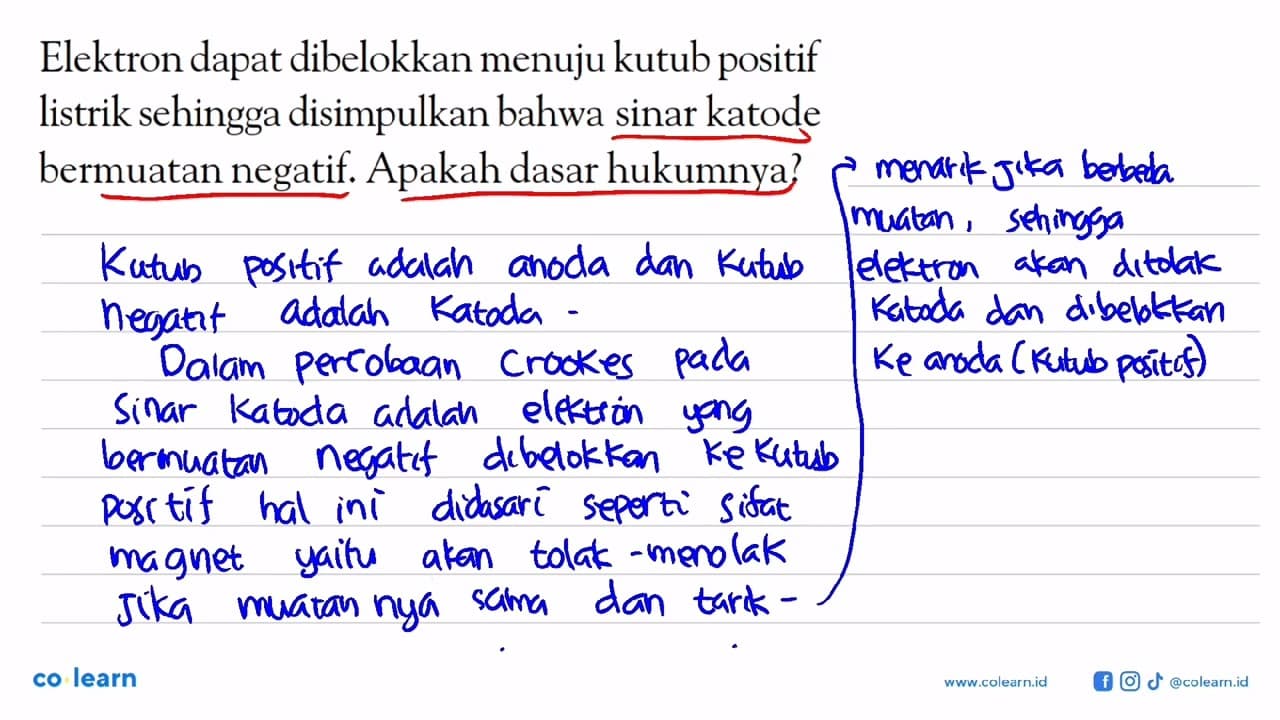 Elektron dapat dibelokkan menuju kutub positif
listrik sehingga disimpulkan bahwa sinar katode
bermuatan negatif. Apakah dasar hukumnya?
Kutub positif adalah anoda dan kutub
negatif adalah katoda -
Dalam percobaan Crookes pada
sinar katoda adalah elektron yang
bermuatan negatif dibelokkan ke kutub
positif hal ini didasari seperti sifat
magnet yaitu akan tolak-menolak
jika muatan nya sama dan tarik-
menarik jika berbeda
muatan, sehingga
elektron akan ditolak
katoda dan dibelokkan
ke anoda (kutub positif)
co learn
www.colearn.id
@colearn.id